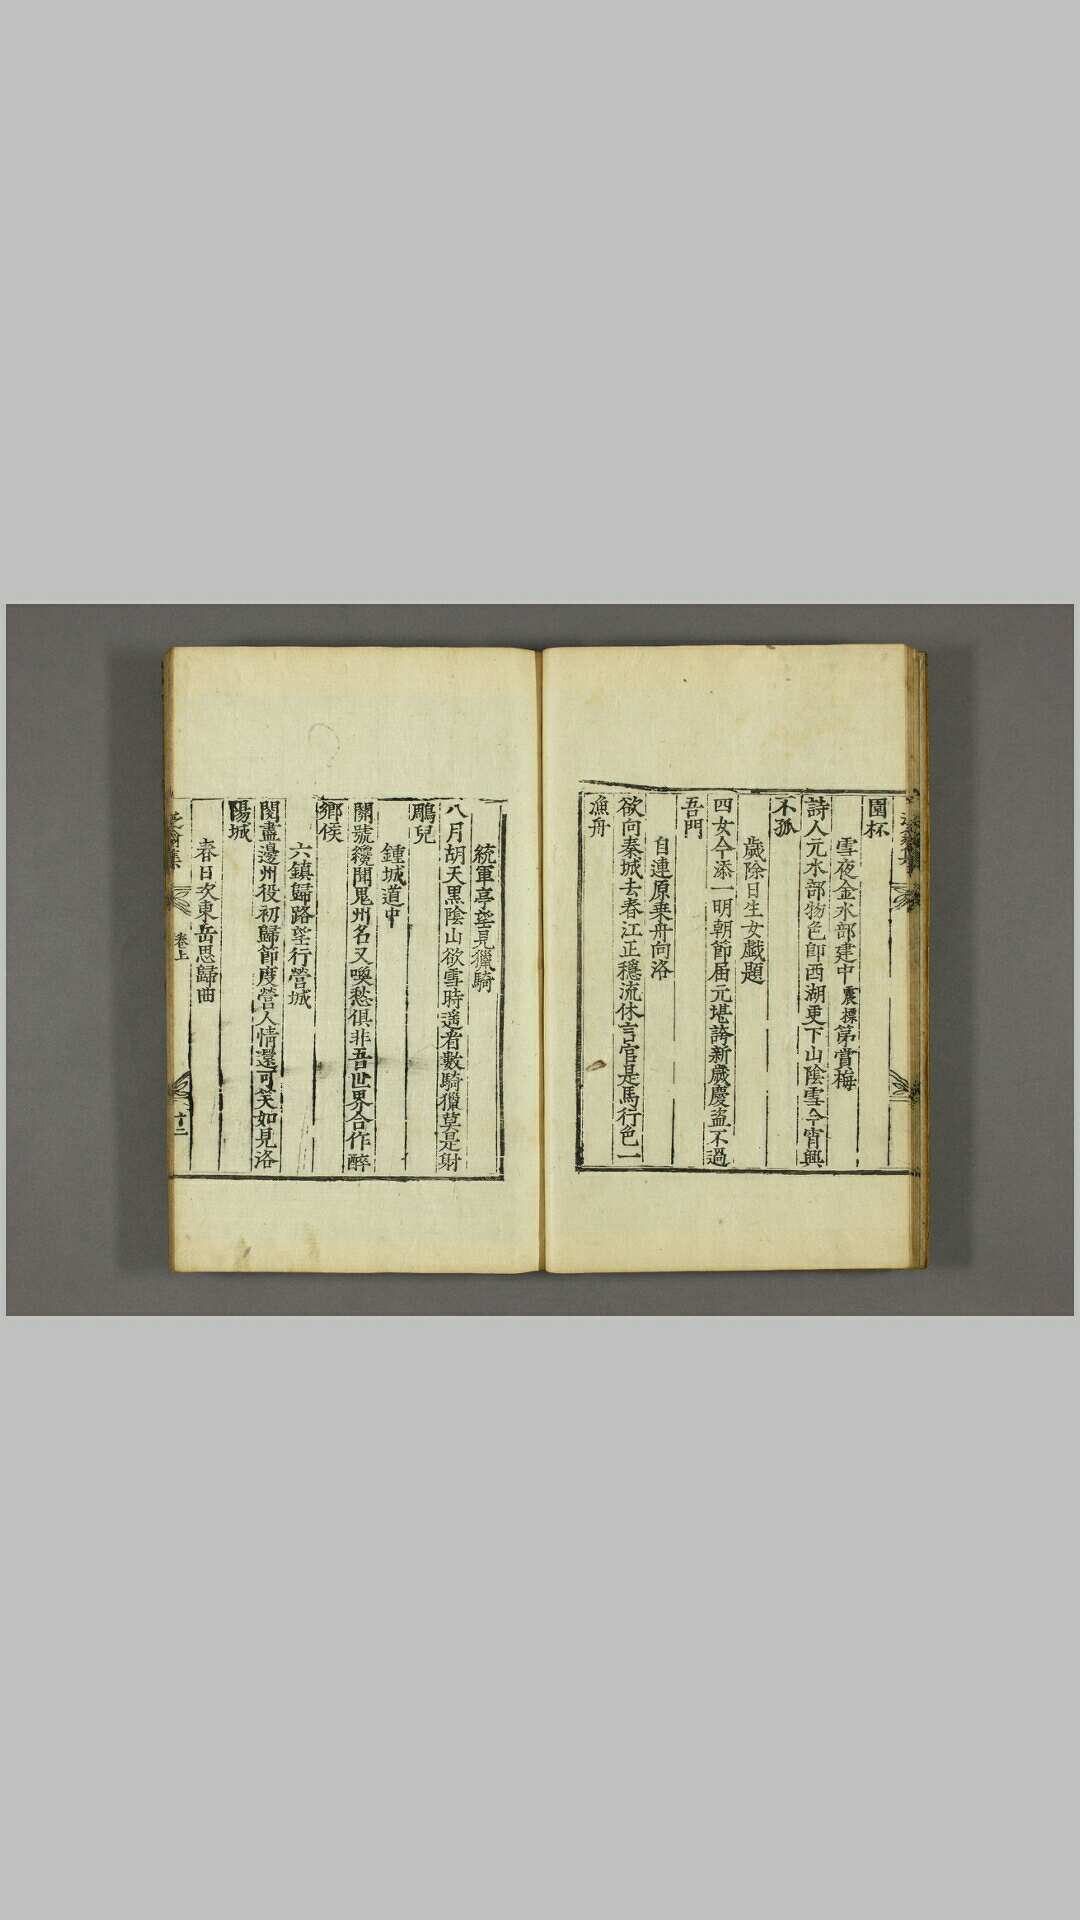 園杯
雪夜金水部建中震標第賞梅
詩人元水部物色卽西湖更下山陰雪今宵興
不孤
歲除日生女戱題
四女今添一明朝節届元堪誇新歲慶盗不過
吾門
自連原乗舟向洛
欲向秦城去春江正穩流休言官是馬行色一
漁舟
統軍亭望見獵騎
八月胡天黑陰山欲雪時遥看數騎獵莫是射
鵰兒
鍾城道中
關號纔聞鬼州名又喚愁俱非吾世界合作醉
鄉侯
六鎮歸路望行營城
閱盡邊州役初歸節度營人情還可笑如見洛
陽城
春日次東岳思歸曲
集 卷上 十二